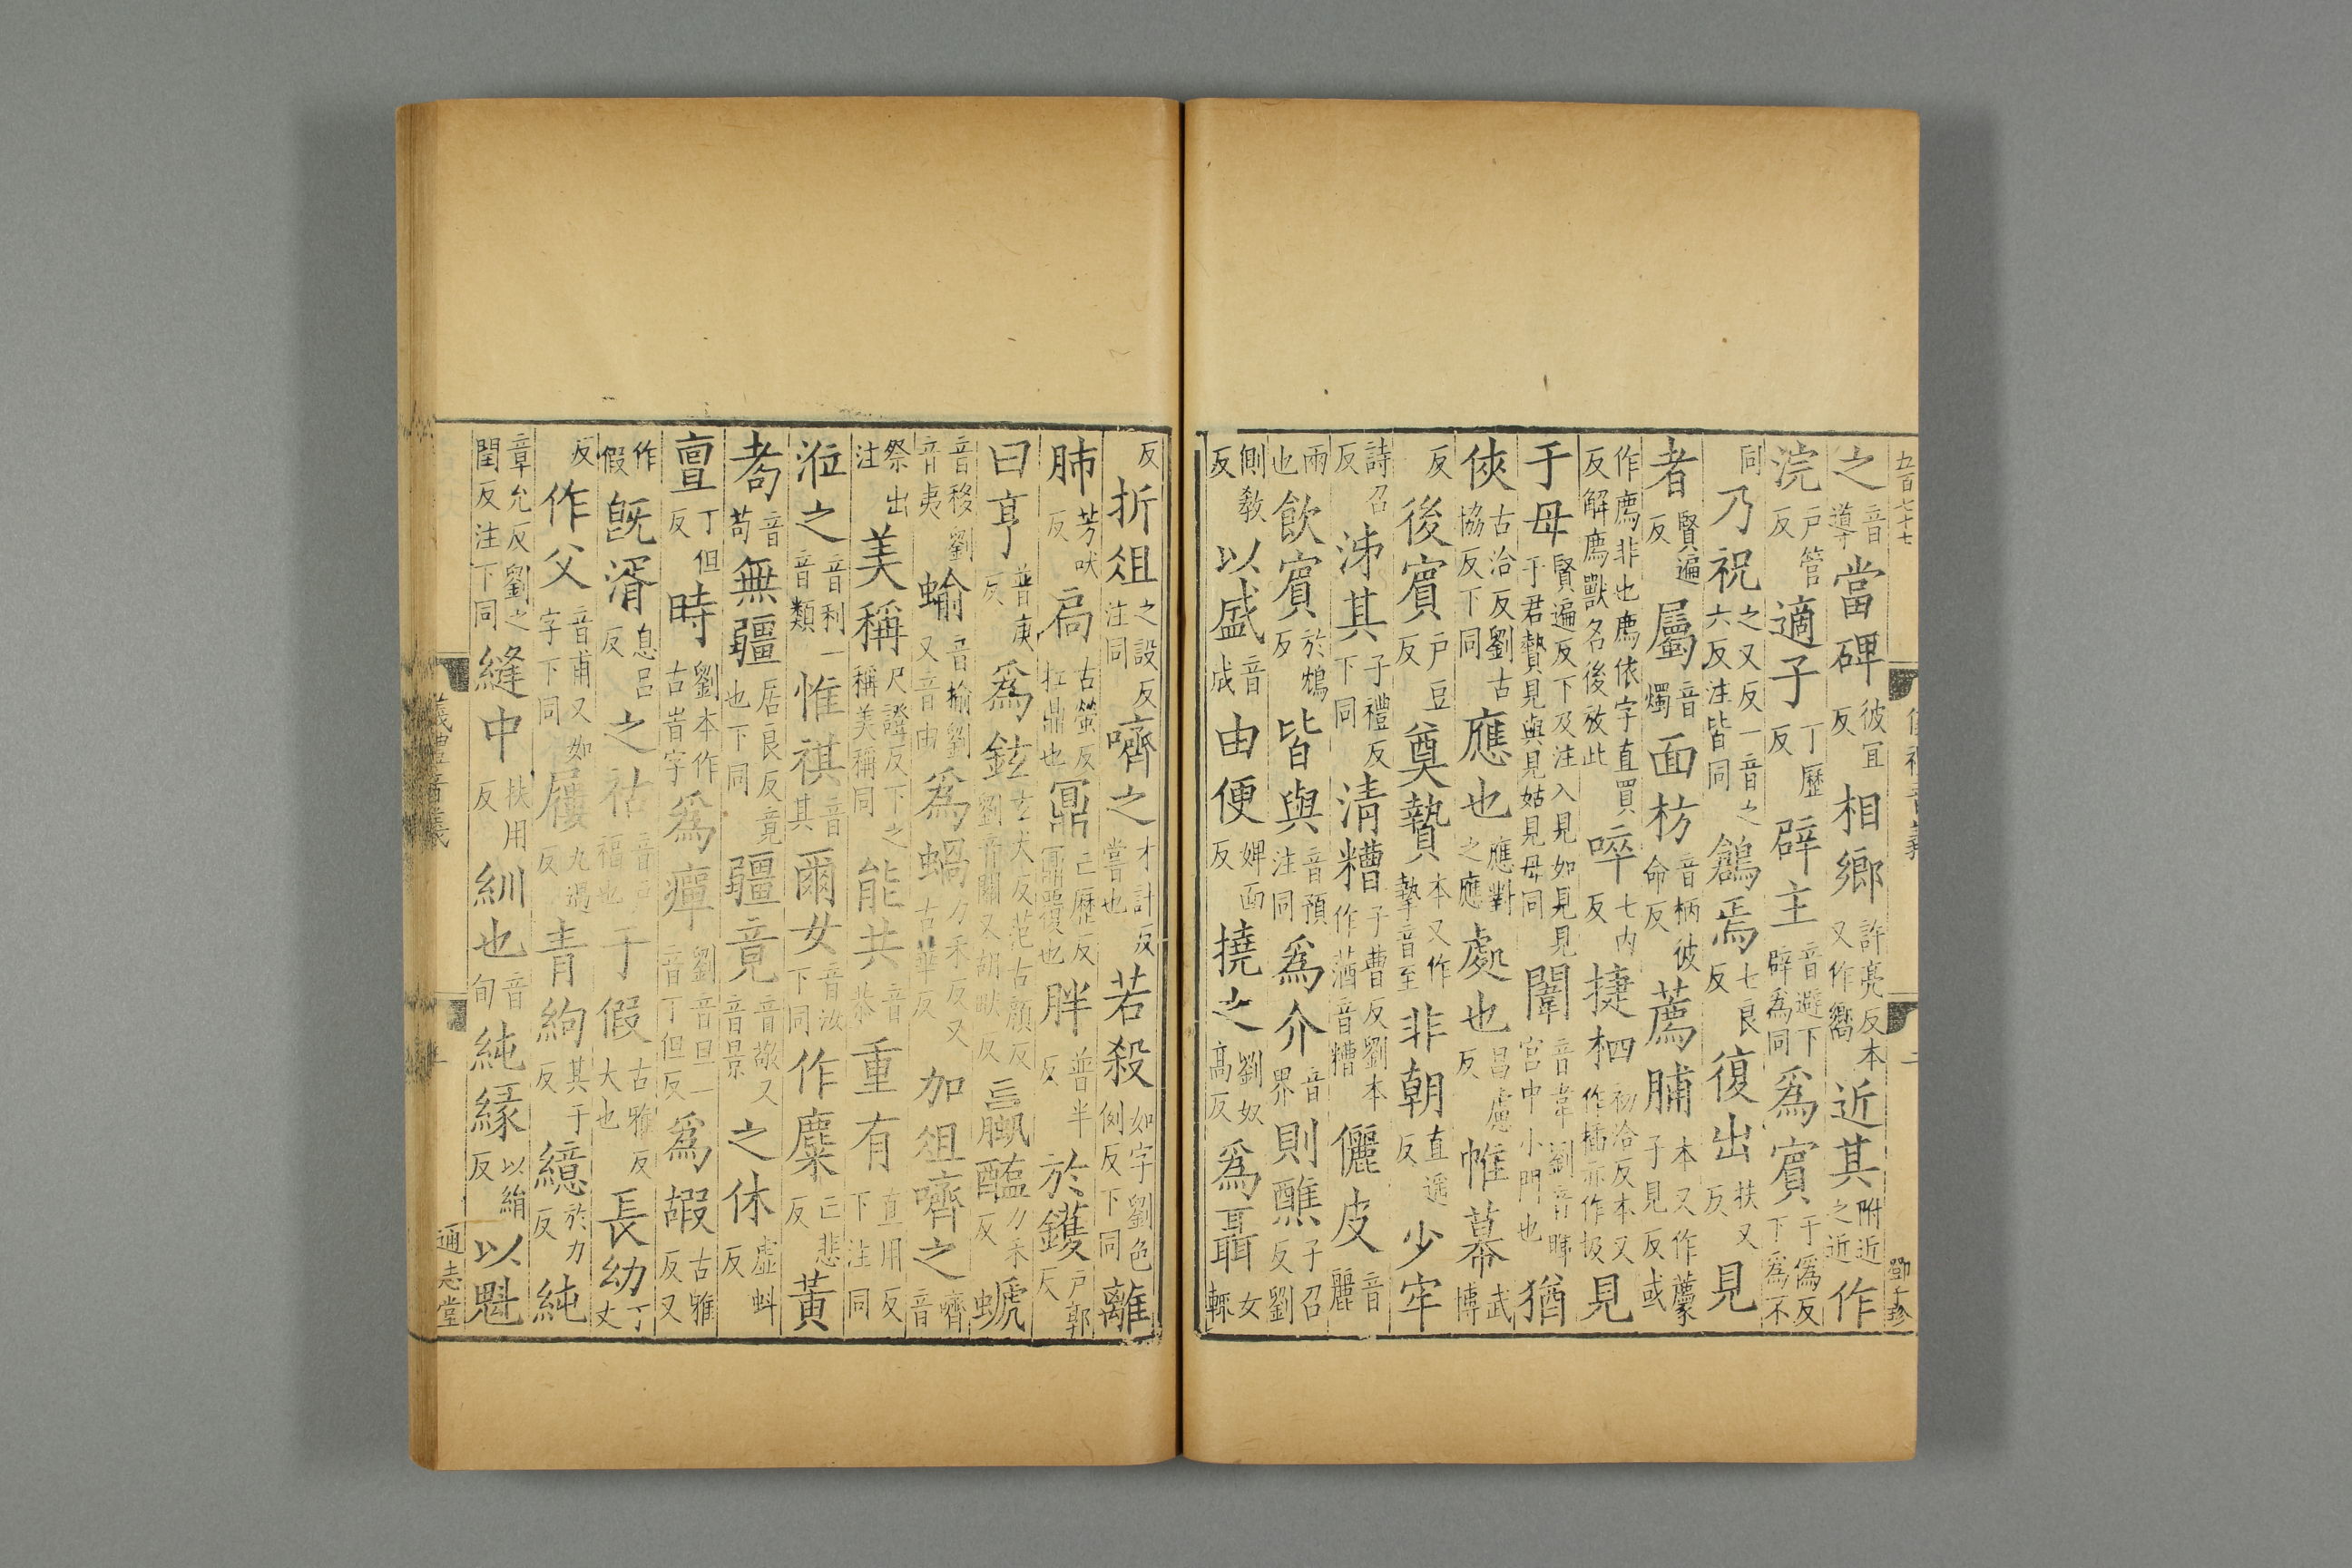 五百七十七
之音導當碑彼宜反相鄉許亮反本又作嚮近其附近之近作
浣戶管反適子丁歷反辟主音避下辟爲同爲賓于僞反下爲不
同乃祝之又反一音之六反注皆同鶬焉七良反復出扶又反見
者賢遍反屬音燭面枋音柄彼命反薦脯本又作䕲子見反或
作廌非也廌依字直買反解廌獸名後放此啐七內反捷柶初洽反本又作插亦作扱見
于母賢遍反下及注入見如見見于君贄見與見姑見母同闈音韋劉音暉宮中小門也猶
俠古洽反劉古協反下同應也應對之應處也昌慮反帷幕武博
反後賓戶豆反奠贄本又作摯音至非朝直遥反少牢
詩召反泲其子禮反下同清糟子曹反劉本作蕕音糟儷皮音麗
兩也飲賓於鴆反皆與音預注同爲介音界則醮子召反劉
側敎反以盛音成由便婢面反撓之劉奴高反爲聶女輒
儀禮音義
二
鄧子珍
反折俎之設反注同嚌之才計反嘗也若殺如字劉色例反下同離
肺芳吠反扃古螢反扛鼎也鼏亡歷反鼏覆也胖普半反於鑊戶郭反
曰亨普庚反爲鉉玄犬反范古顔反劉音關又胡畎反蠃醢力禾反蜾
音移劉音夷蝓音揄劉又音由爲蝸力禾反又古華反加俎嚌之嚌音
祭出注美稱尺證反下之稱美稱同能共音恭重有直用反下注同
涖之音利一音類惟祺音其爾女音汝下同作麋亡悲反黃
耇音苟無疆居良反竟也下同疆竟音敬又音景之休虛蚪反
亶丁但反時劉本作古旹字爲癉劉音旦一音丁但反爲嘏古雅反又
作假旣湑息呂反之祜音戶福也于假古雅反大也長幼丁丈
反作父音甫又如字下同屨九遇反青絇其于反繶於力反純
章允反劉之閏反注下同縫中扶用反紃也音旬純緣以絹反以魁
儀禮音義
通志堂